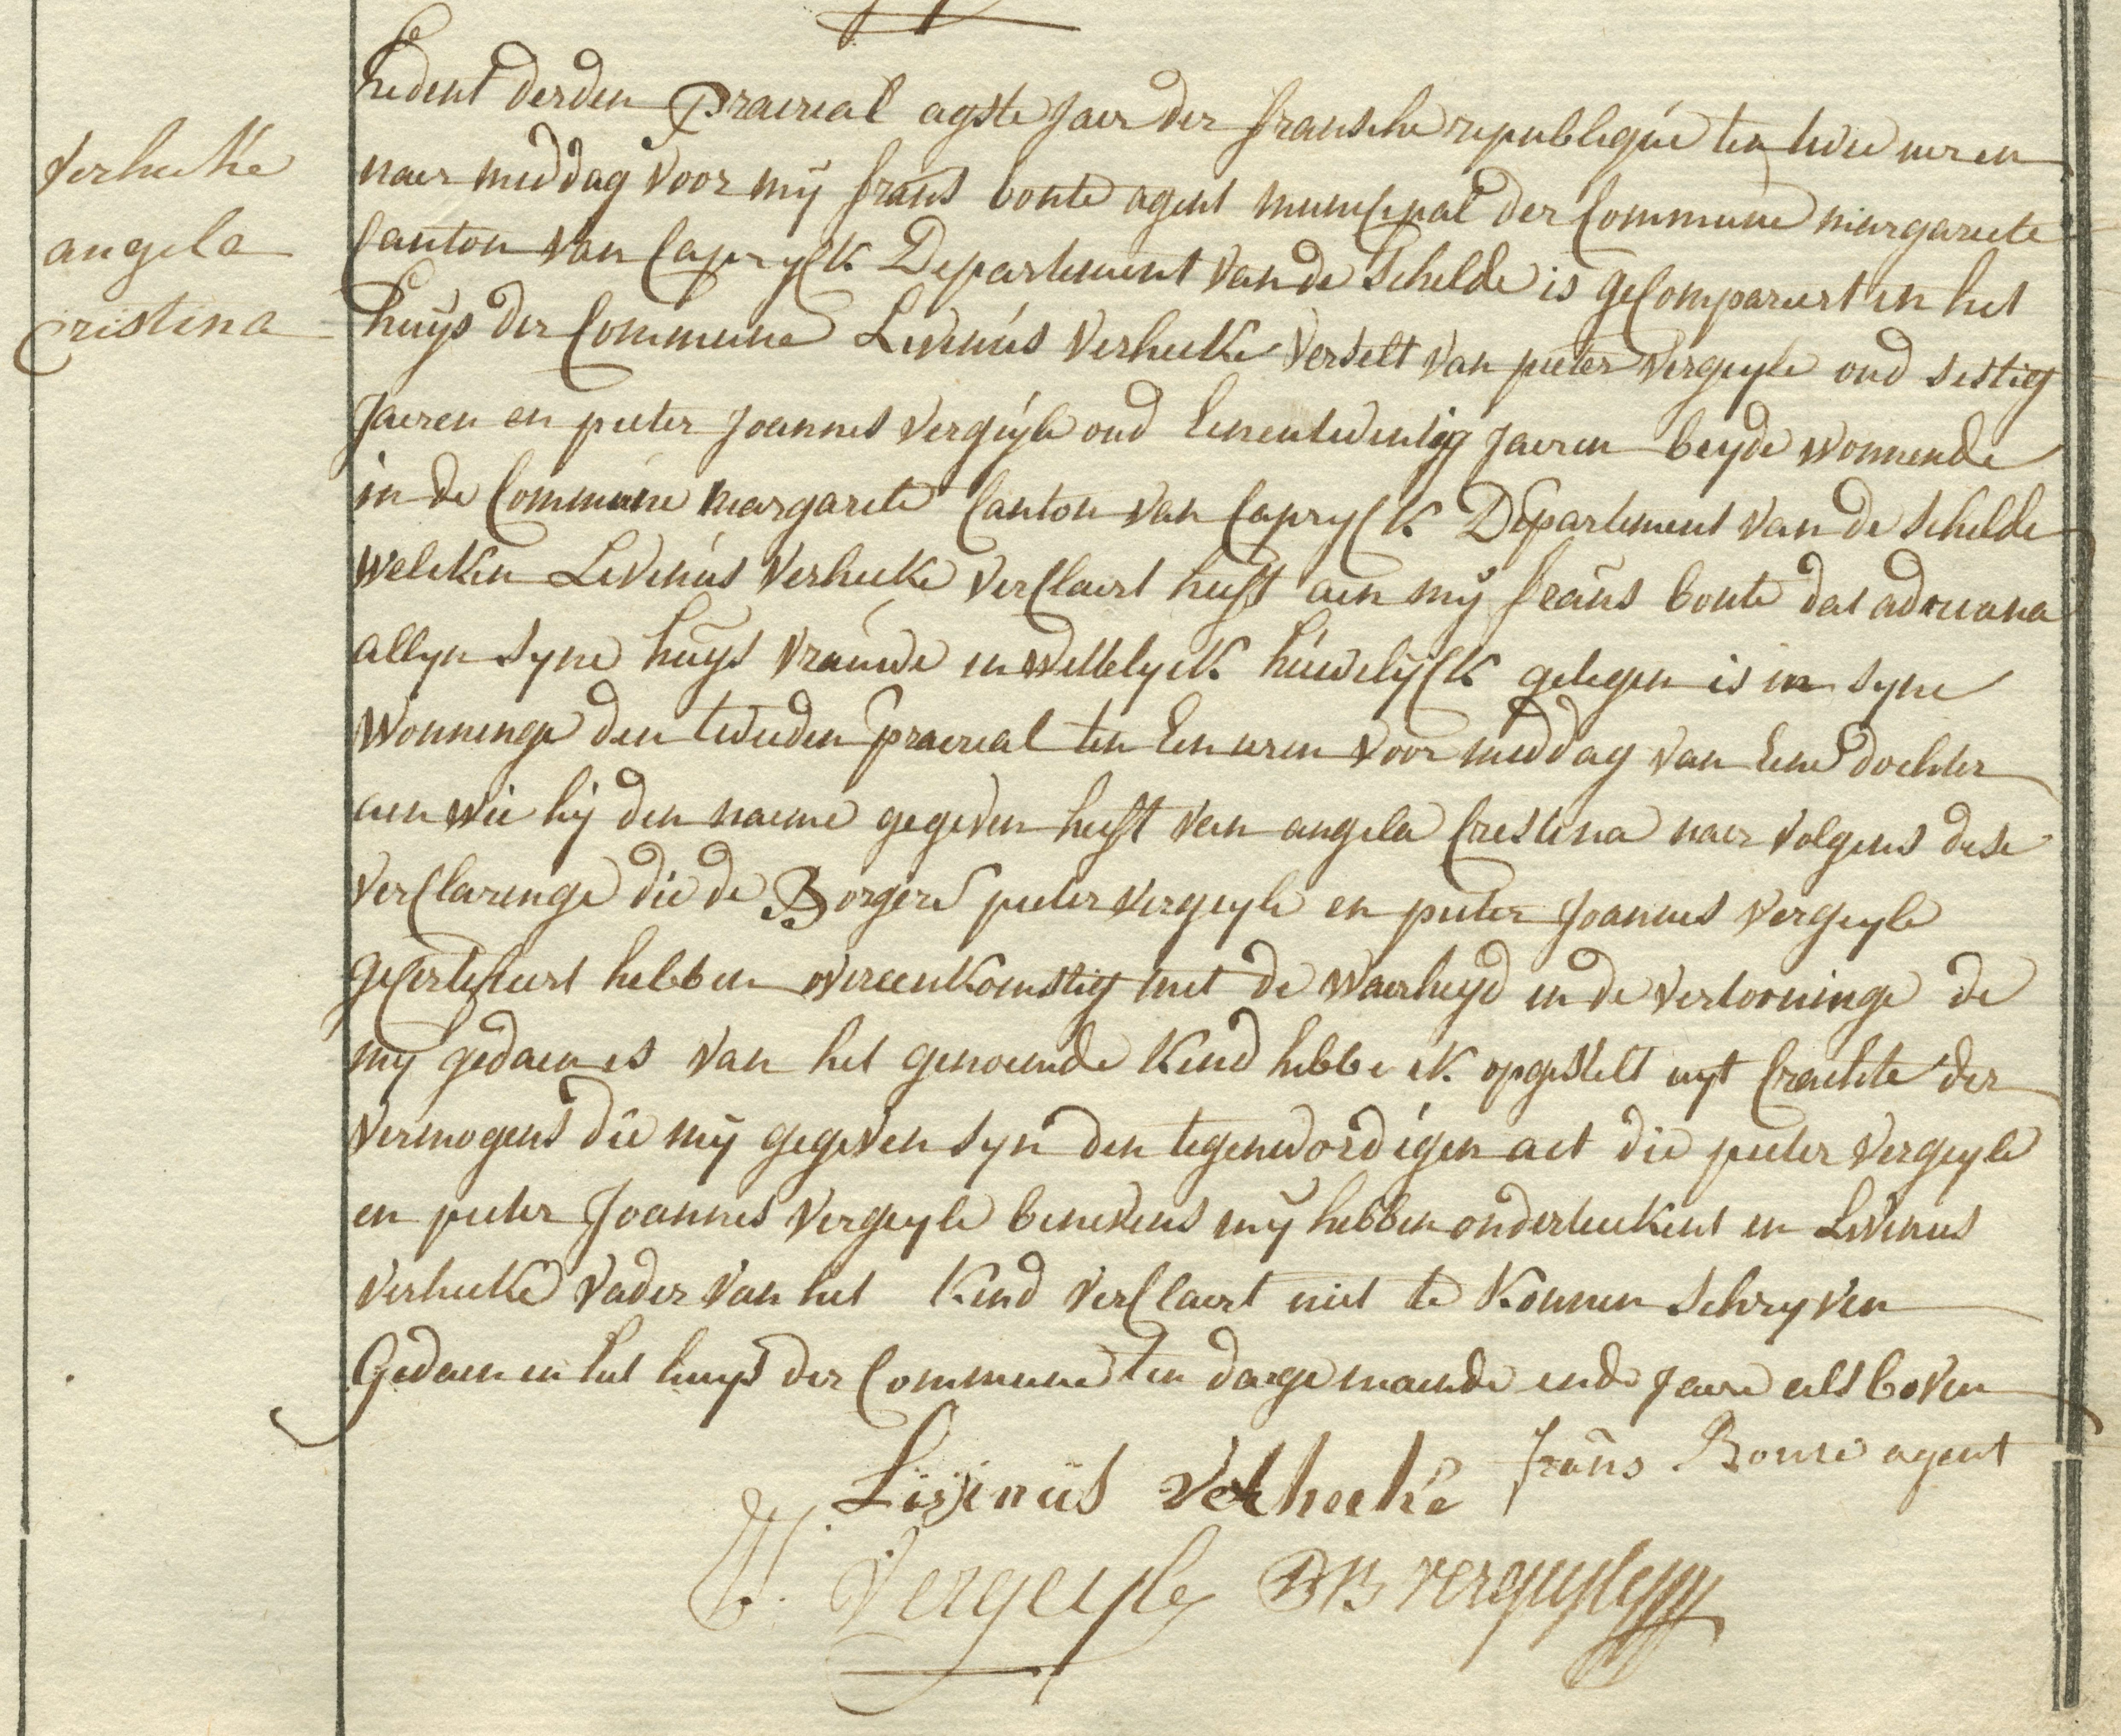 Verheeke
angela
Cristina
hedent derden Praerial agste Jaer der fransche republique ten twee uren
naer middag voor mij frans bonte agent municipal der Commune margariete
Canton van Capryck Departement van de Schelde is geCompareert in het
huys der Commune Livinus Verheeke verselt van pieter vergeyle oud sestig
Jaeren en pieter Joannes vergeyle oud Eenentwintig Jaeren beyde wonnende
in de Commune margariete Canton van Capryck Departement van de Schelde
welcken Livinus Verheeke verClaert heeft aen mij frans bonte dat adriana
allyn syne huys vrauwe in wettelyck huwelijck gelegen is in syne
Wonninge den tweeden praerial ten Een uren voor middag van Eene dochter
aen wie hij den naeme gegeven heeft van angela Cristina naer volgens dese
verClaringe die de Borgers pieter vergeyle en pieter Joannes vergeyle
geCertefieert hebben overeenkomstig met de waerheyd en de vertooninge de
mij gedaen is van het genoemde Kind hebbe ik opgestelt uyt Crachte der
vermogens die mij gegeven syn den tegenwordigen act die pieter vergeyle
en pieter Joannes vergeyle benevens mij hebben onderteekent en Livinus
verheeke vader van het Kind verClaert niet te Konnen schryven
Gedaen in het huys der Commune ten dage maende ende Jaere als boven
frans Bonte agent
Livinus Verheeke
Vergeyle vergeyle